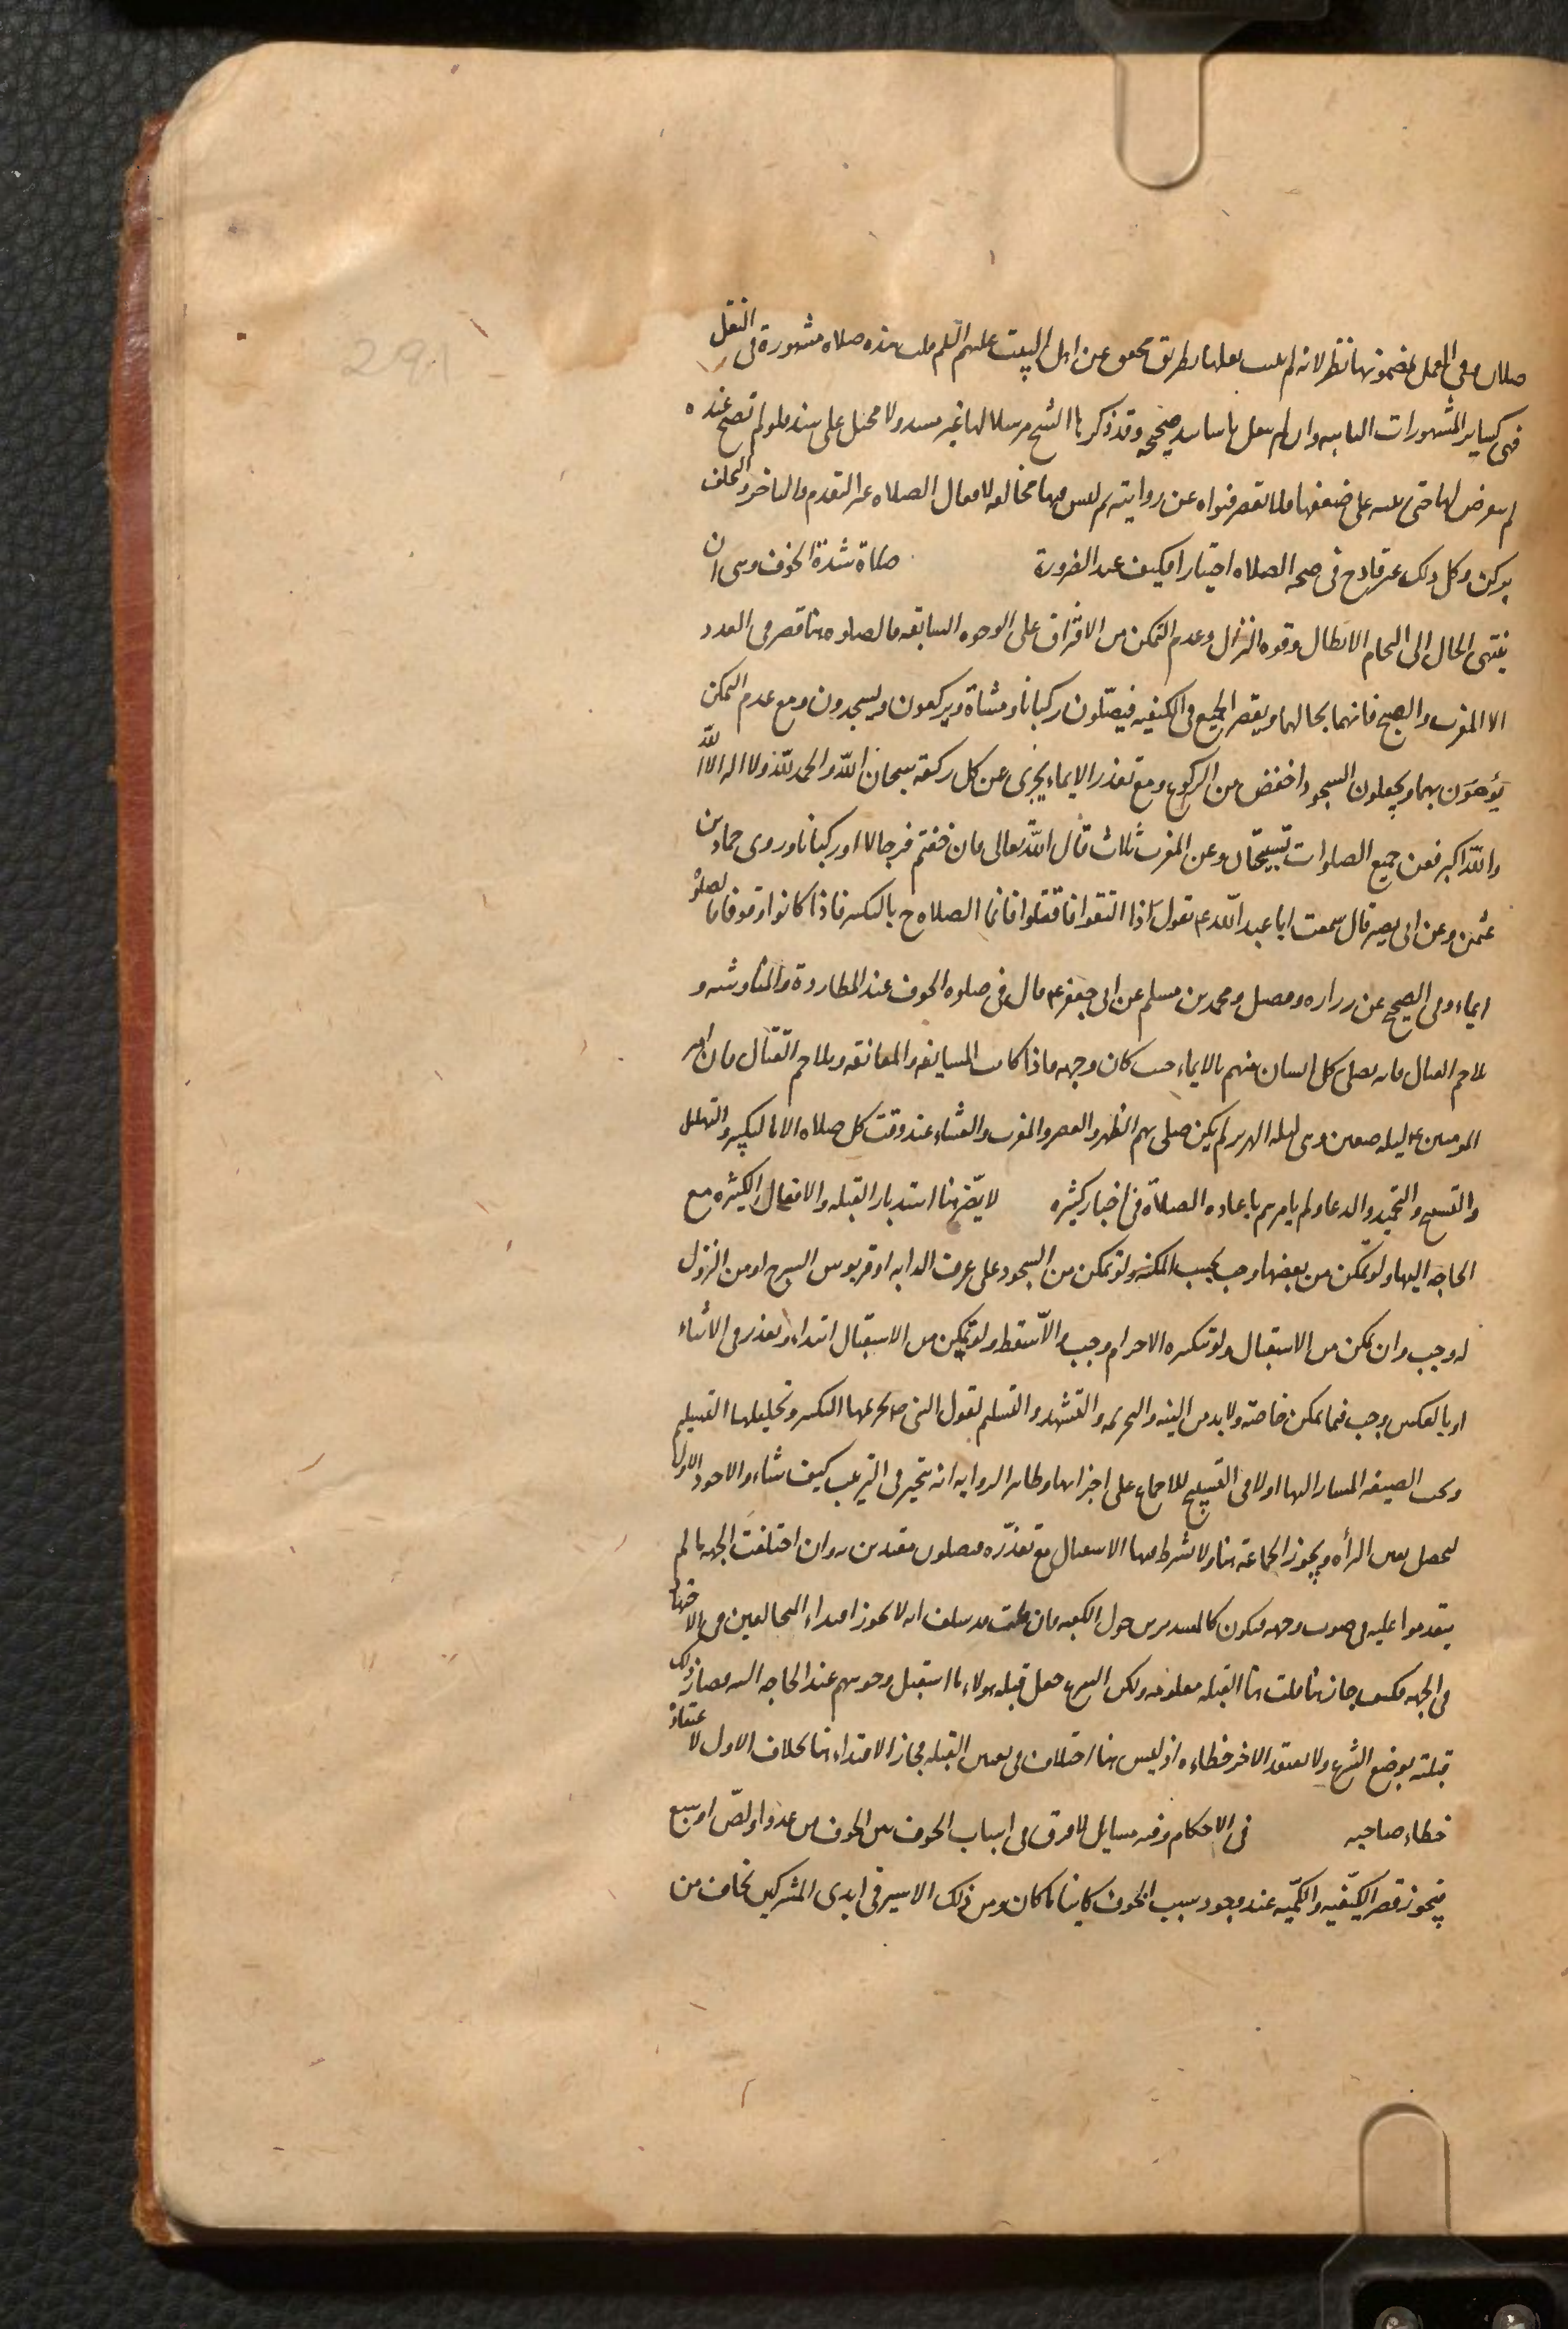 صلاتان وفى العمل بمضمونها نظر لانه لم يثبت نقلها بطريق محقق عن اهل البيت عليهم السلم قلت هذه صلاة مشهورة فى النقل
فهى كساير المشهورات الثابتة وان لم ينقل باسانيد صحيحه وقد ذكرها الشيخ مرسلا لها غير مسند ولا محيل على سند فلو لم تصح عنده
لم يتعرض لها حتى ينبه على ضعفها فلا تقصر فتواه عن روايته ثم ليس فيها مخالفه لافعال الصلاه غير التقدم والتاخر والتخلف
بركن وكل ذلك غير قادح فى صحه الصلاه اختيارا فكيف عند الضرورة صلاة شدة الخوف وهى ان
ينتهى الحال الى التحام الابطال وقوه النزال وعدم التمكن من الافتراق على الوجوه السابقه فالصلوه هنا قصر فى العدد
الا المغرب والصبح فانهما بحالهما ويقصر الجميع فى الكيفيه فيصلون ركبانا ومشاة ويركعون ويسجدون ومع عدم التمكن
يؤمون بهما ويجعلون السجود اخفض من الركوع ومع تعذر الايماء يجزى عن كل ركعة سبحان الله والحمد لله ولا اله الا الله
والله اكبر فعن جميع الصلوات تسبيحتان وعن المغرب ثلاث قال الله تعالى فان خفتم فرجالا او ركبانا وروى حماد بن
عثمن وعن ابى بصير قال سمعت ابا عبد الله ع يقول اذا التقوا فاقتتلوا فانما الصلاه ح بالتكبير فاذا كانوا وقوفا فالصلوة
ايماء وفى الصحيح عن زراره وفضيل ومحمد بن مسلم عن ابى جعفر ع قال فى صلوه الخوف عند المطاردة والمناوشه و
تلاحم القتال فانه يصلى كل انسان منهم بالايماء حيث كان وجهه فاذا كانت المسايفه والمعانقه وتلاحم القتال فان امير
المومنين ع ليله صفين وهى ليله الهرير لم يكن صلى بهم الظهر والعصر والمغرب والعشاء عند وقت كل صلاه الا بالتكبير والتهليل
والتسبيح والتحميد والدعاء ولم يامرهم باعاده الصلاة فى اخبار كثيره لا يضر هنا استدبار القبله والافعال الكثيره مع
الحاجه اليها ولو تمكن من بعضها وجب بحسب المكنه ولو تمكن من السجود على عرف الدابه او قربوس السرج او من النزول
له وجب وان تمكن من الاستقبال ولو بتكبيره الاحرام وجب والا سقط ولو تمكن من الاستقبال ابتداء وتعذر فى الاثناء
او بالعكس وجب فيما يمكن خاصة ولا بد من النيه والتحريمه والتشهد والتسليم لقول النبى ص تحريمها التكبير وتحليلها التسليم
ويجب الصيغه المشار اليها اولا فى التسبيح للاجماع على اجزائها وظاهر الروايه انه يتخير فى الترتيب كيف شاء والاجود الاول
ليحصل يقين البرأه ويجوز الجماعة هنا ولا يشترط فيها الاستقبال مع تعذره فيصلون مقتدين به وان اختلفت الجهه ما لم
يتقدموا عليه فى صوب وجهه فيكون كالمستديرين حول الكعبه فان قلت قد سلف انه لا يجوز اقتداء المخالفين فى الاجتهاد
فى الجهه فكيف جاز هنا قلت هنا القبله معلومه ولكن الشرع جعل قبله هولاء ما استقبل وجوههم عند الحاجه اليه فصار ذلك
قبلته بوضع الشرع ولا يعتقد الاخر خطاءه اذ ليس هنا اختلاف فى يقين القبله فجاز الاقتداء هنا بخلاف الاول لاعتقاد
خطاء صاحبه فى الاحكام وفيه مسايل لا فرق فى اسباب الخوف بين الخوف من عدو او لص او سبع
فيجوز قصر الكيفيه والكميه عند وجود سبب الخوف كاينا ما كان ومن ذلك الاسير فى ايدى المشركين يخاف من